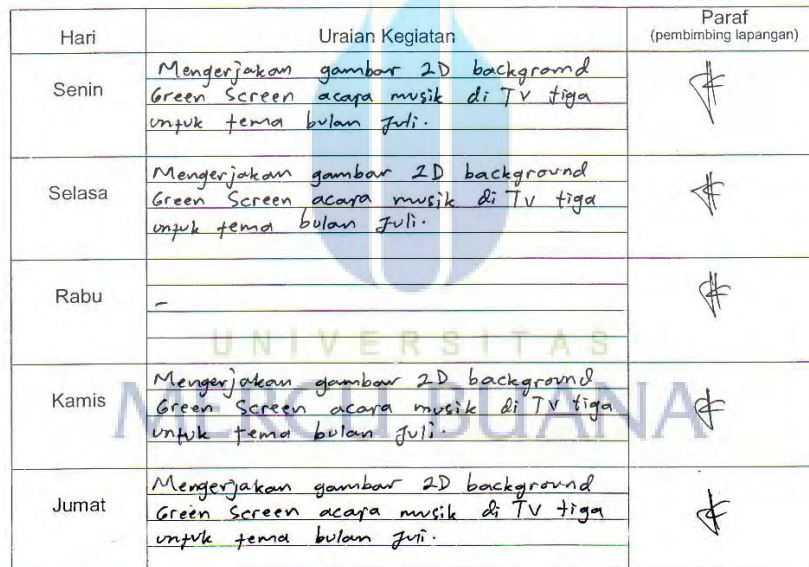 Hari Uraian Kegiatan Paraf
(pembimbing lapangan)
Senin
Mengerjakan gambar 2D background
Green Screen acara musik di TV tiga
untuk tema bulan Juli.
Selasa
Mengerjakan gambar 2D background
Green Screen acara musik di TV tiga
untuk tema bulan Juli.
Rabu
-
UNIVERSITAS
MERCU BUANA
Kamis
Mengerjakan gambar 2D background
Green Screen acara musik di TV tiga
untuk tema bulan Juli.
Jumat
Mengerjakan gambar 2D background
Green Screen acara musik di TV tiga
untuk tema bulan Juli.